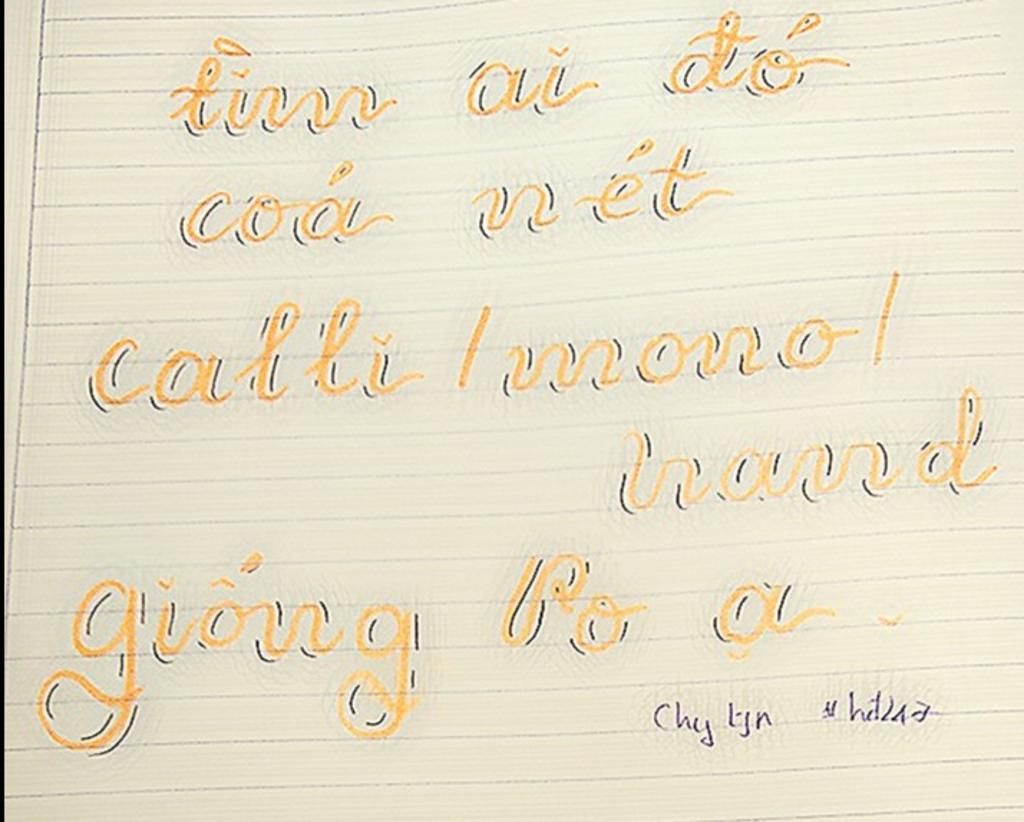 tìm ai đó
coá nét
calli / mono /
hand
giống Po ạ.
Chy